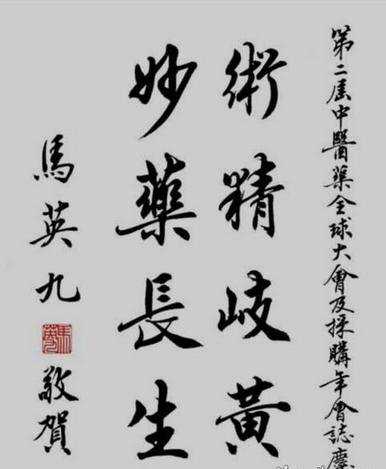 第二屆中醫藥全球大會及採購年會誌慶
術精岐黃
妙藥長生
馬英九
敬賀